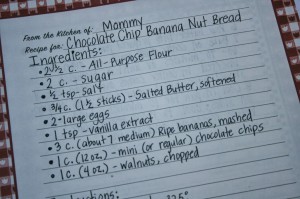 From the Kitchen of: Mommy
Recipe for: Chocolate Chip Banana Nut Bread
Ingredients:
• 2 ½ c. - All-Purpose Flour
• 2 c. - Sugar
• ½ tsp - Salt
• ¾ c. (1 ½ sticks) - Salted Butter, softened
• 2 - large eggs
• 1 tsp - Vanilla extract
• 3 c. (about 7 medium) Ripe bananas, mashed
• 1 c. (12 oz.) - mini (or regular) chocolate chips
• 1 c. (4 oz.) - walnuts, chopped